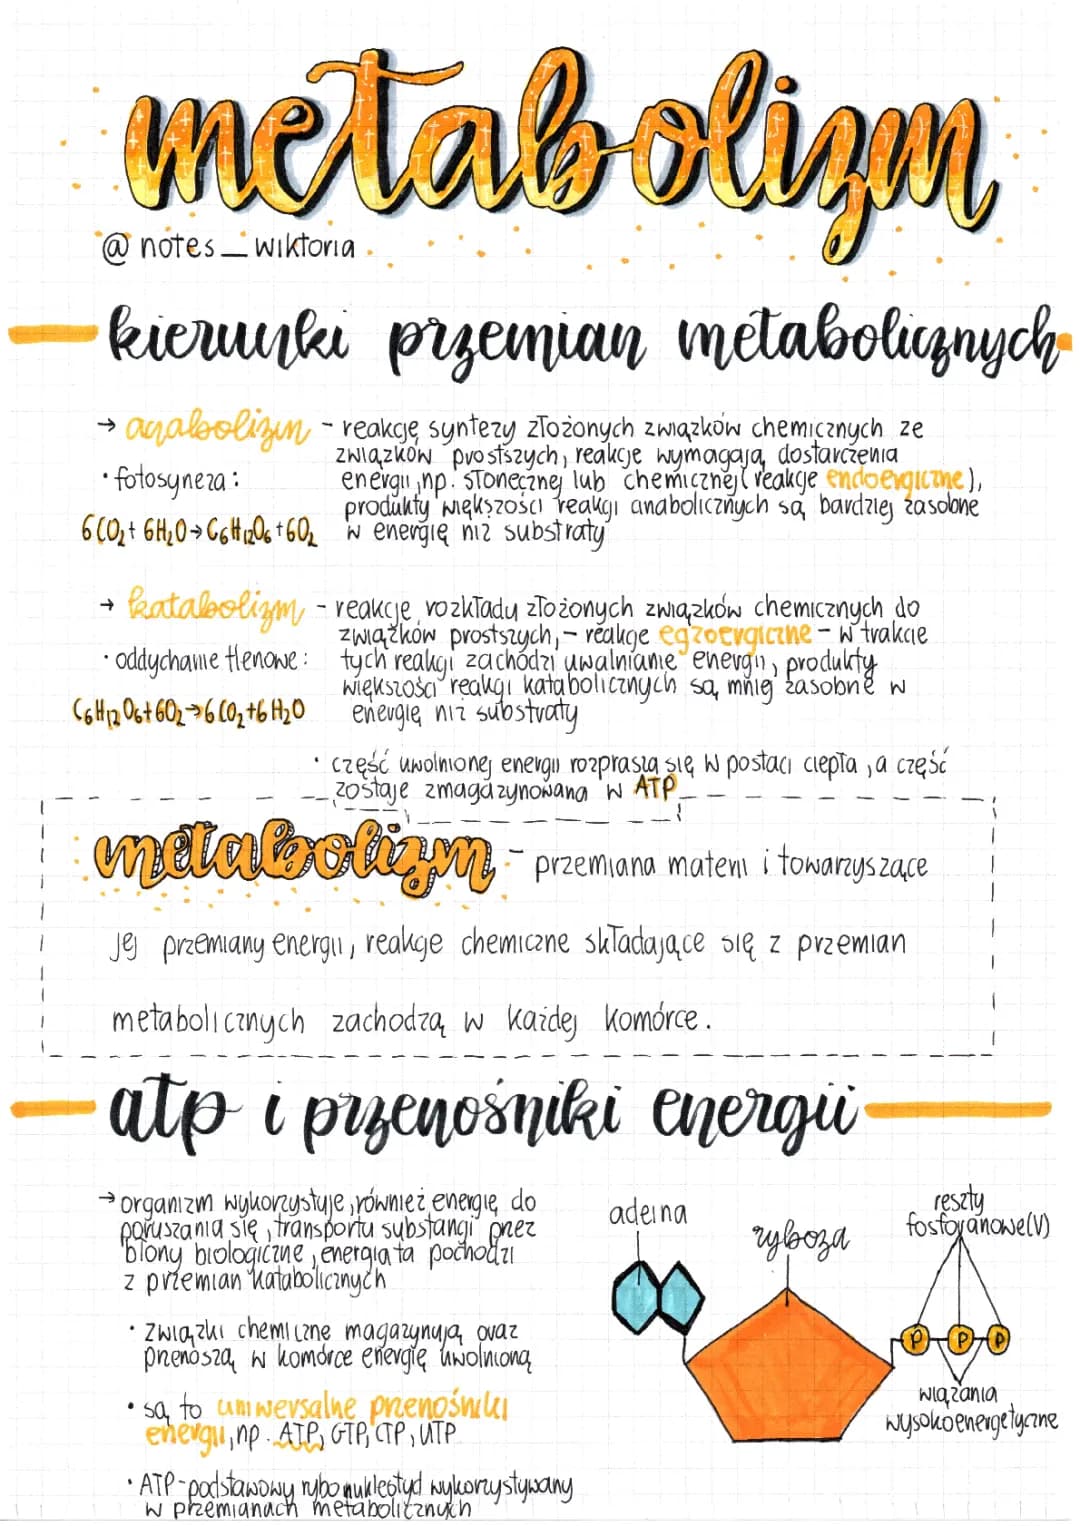 metabolizm
@notes_wiktoria
kierunki przemian metabolicznych
→ anabolizm - reakcję syntezy złożonych związków chemicznych ze
związków prostszych, reakcje wymagają dostarczenia
• fotosyneza:
energii, np. słonecznej lub chemicznej (reakcje endoergiczne),
produkty większości reakcji anabolicznych są bardziej zasobne
6CO₂ + 6H₂O → C₆H₁₂O₆ + 6O₂
w energię niż substraty
→ katabolizm - reakcje rozkładu złożonych związków chemicznych do
związków prostszych, - reakcje egzoergiczne - w trakcie
• oddychanie tlenowe:
tych reakcji zachodzi uwalnianie energii, produkty
większości reakcji katabolicznych są mniej zasobne w
C₆H₁₂O₆ + 6O₂ → 6CO₂ + 6H₂O
energię niż substraty
• część uwolnionej energii rozprasza się w postaci ciepła, a część
zostaje zmagazynowana w ATP
metabolizm - przemiana materii i towarzyszące
jej przemiany energii, reakcje chemiczne składające się z przemian
metabolicznych zachodzą w każdej komórce.
atp i przenośniki energii
→ organizm wykorzystuje również energię do
poruszania się, transportu substancji przez
błony biologiczne, energia ta pochodzi
z przemian katabolicznych
• związki chemiczne magazynują oraz
przenoszą w komórce energię uwolnioną
• są to uniwersalne przenośniki
energii, np. ATP, GTP, CTP, UTP
• ATP - podstawowy rybonukleotyd wykorzystywany
w przemianach metabolicznych
adeina
ryboza
reszty
fosforanowe(V)
P P P
wiązania
wysokoenergetyczne